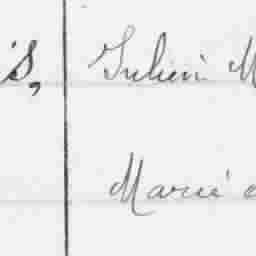 s, Julien M
Marie